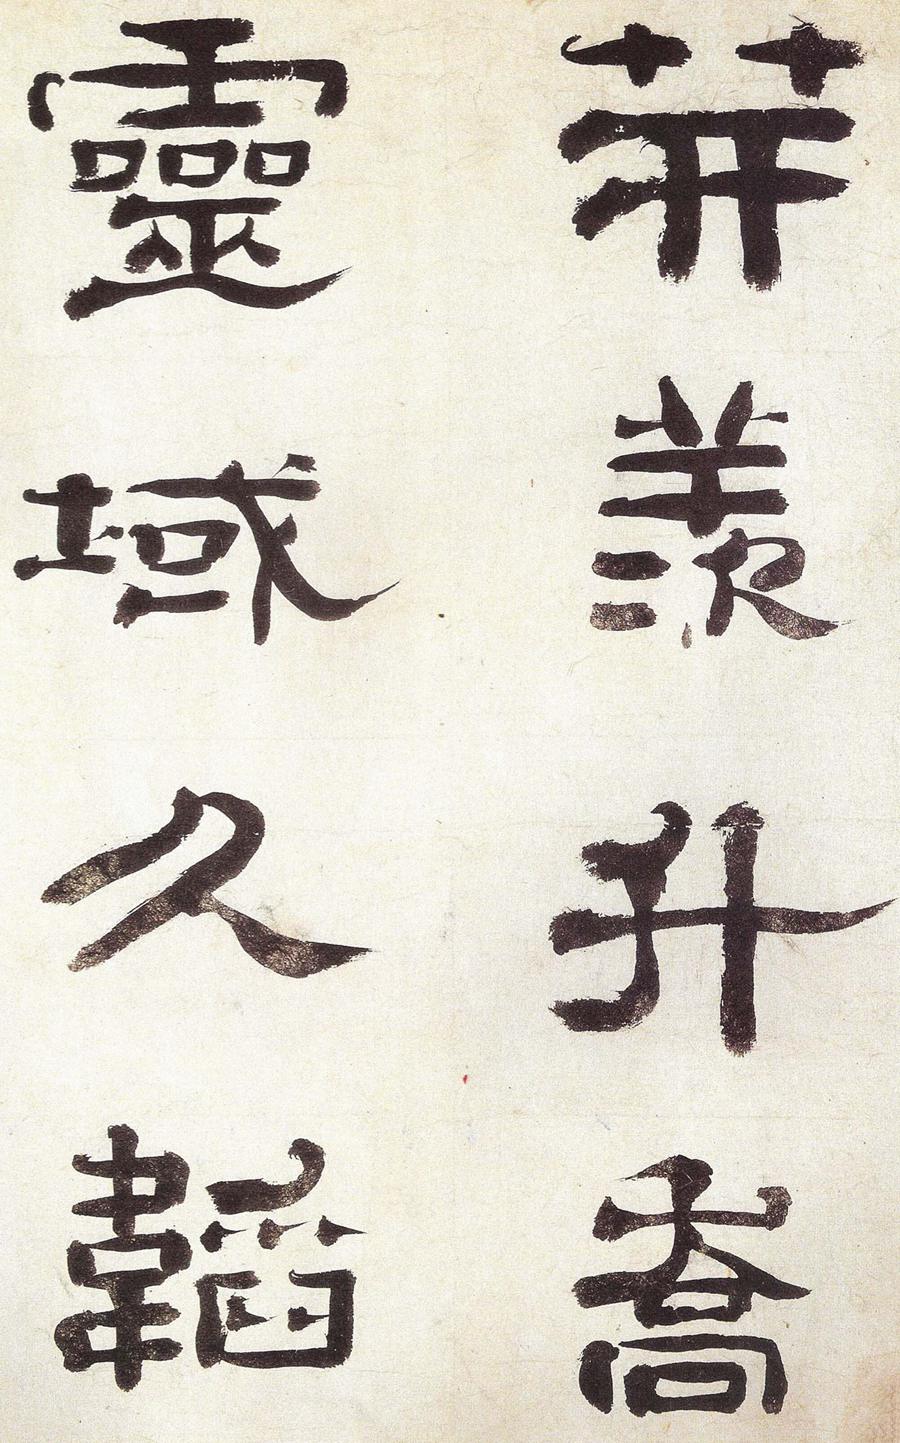 荓羨升喬
靈域久韜